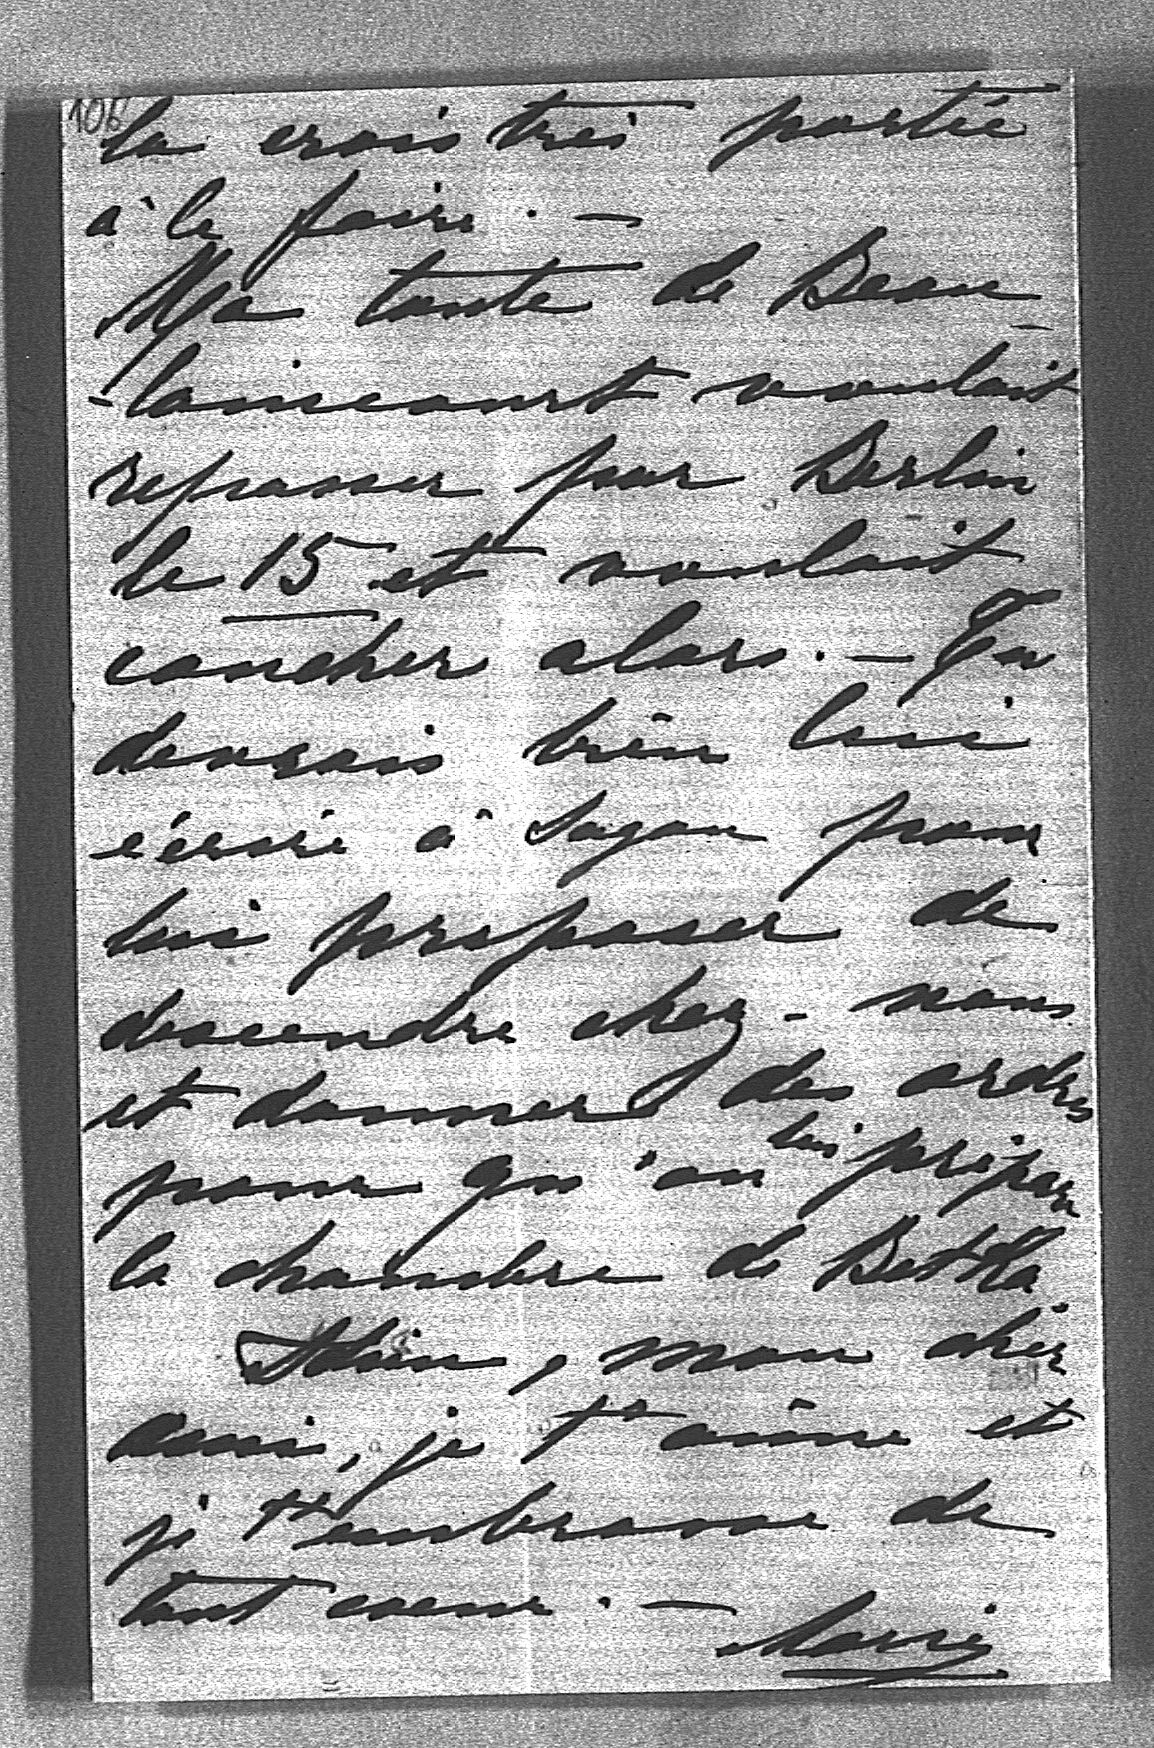 106
la crois très portée
à le faire. —
Ma tante de Beau-
-laincourt voulait
repasser par Berlin
le 15 et voulait
coucher alors. — Tu
devrais bien lui
écrire à Sagan pour
lui proposer de
descendre chez-nous
et donner des ordres
pour qu'on lui prépare
la chambre de Betka
Adieu, mon cher
ami, je t'aime et
je t'embrasse de
tout coeur. —
Marie